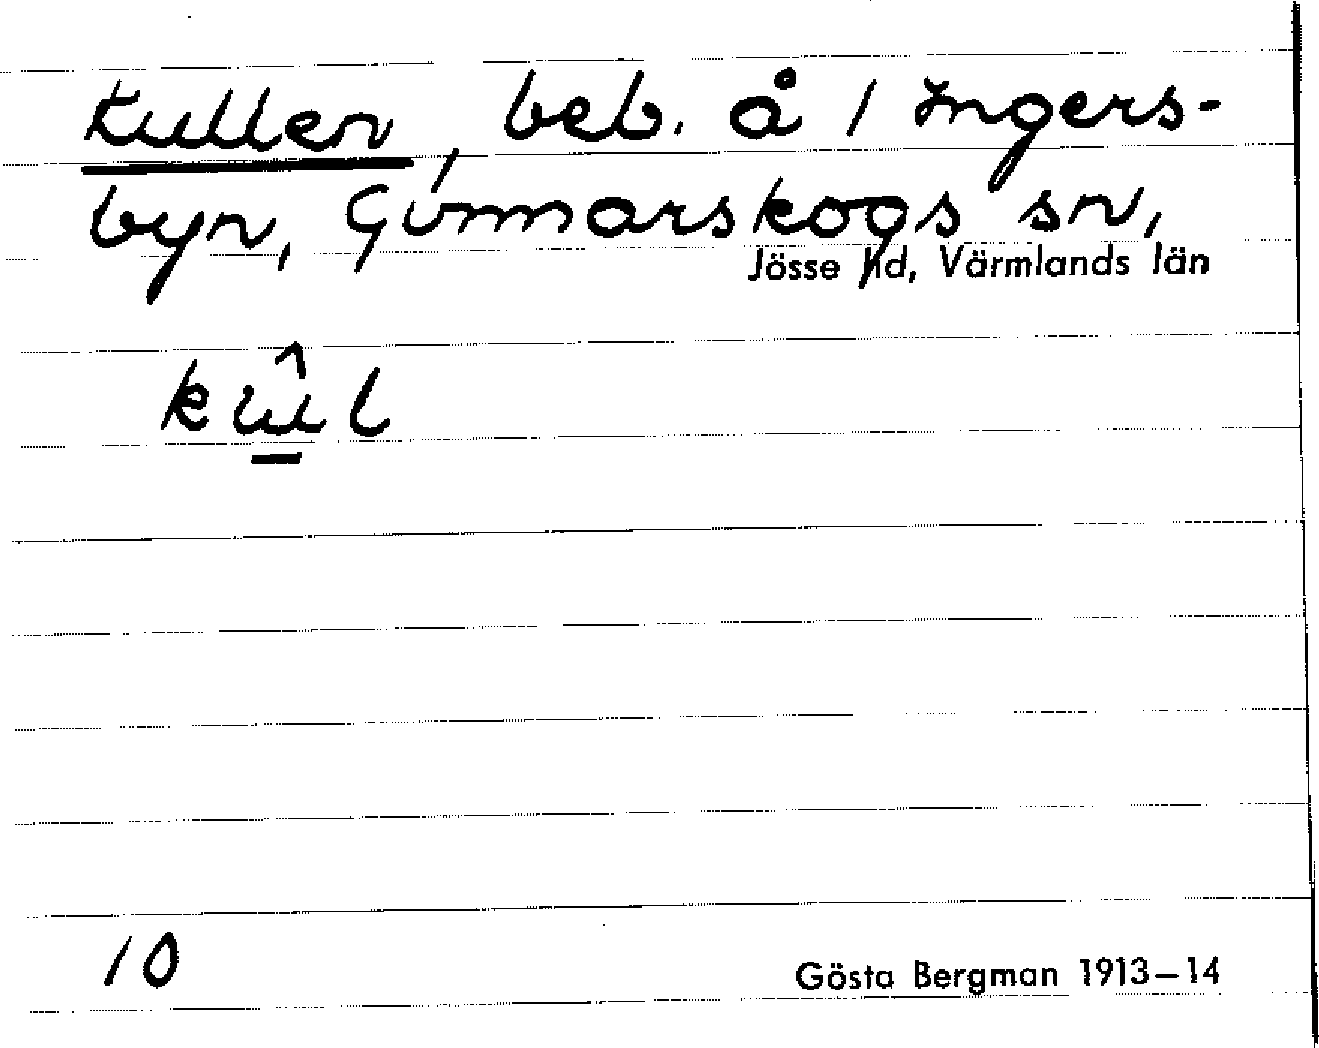 Kullen, beb. å 1 Ingers-
byn, Gunnarskogs sn,
Jösse hd, Värmlands län
kûl
10
Gösta Bergman 1913–14